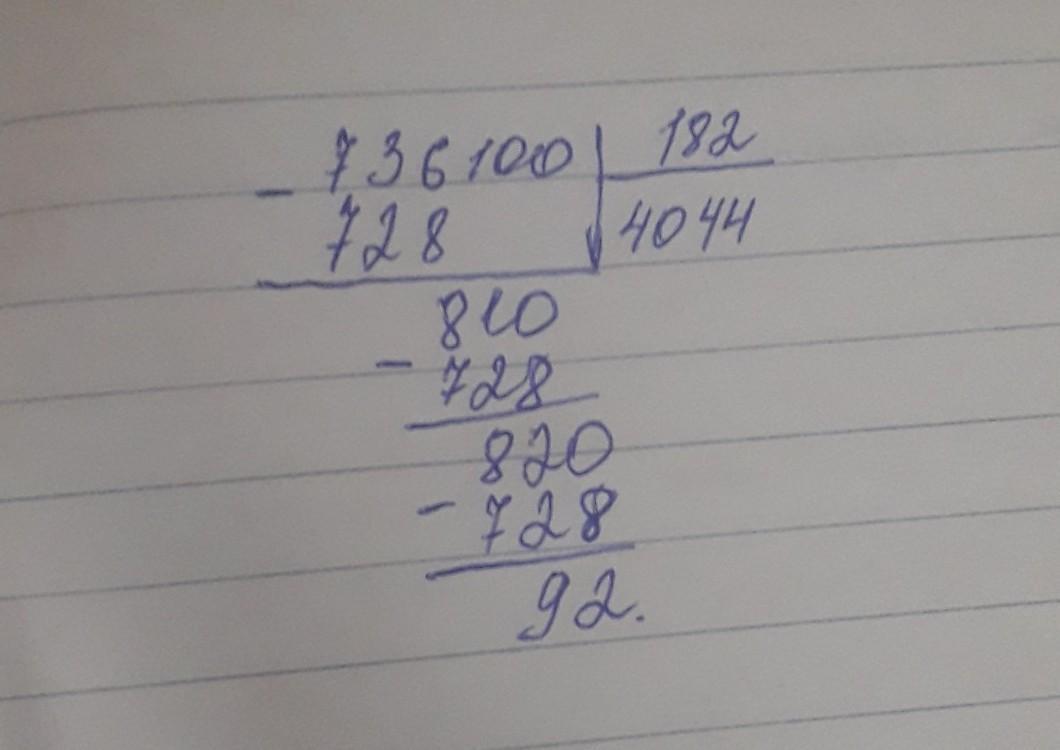 736100 182
- 728 4044
810
- 728
820
- 728
92.